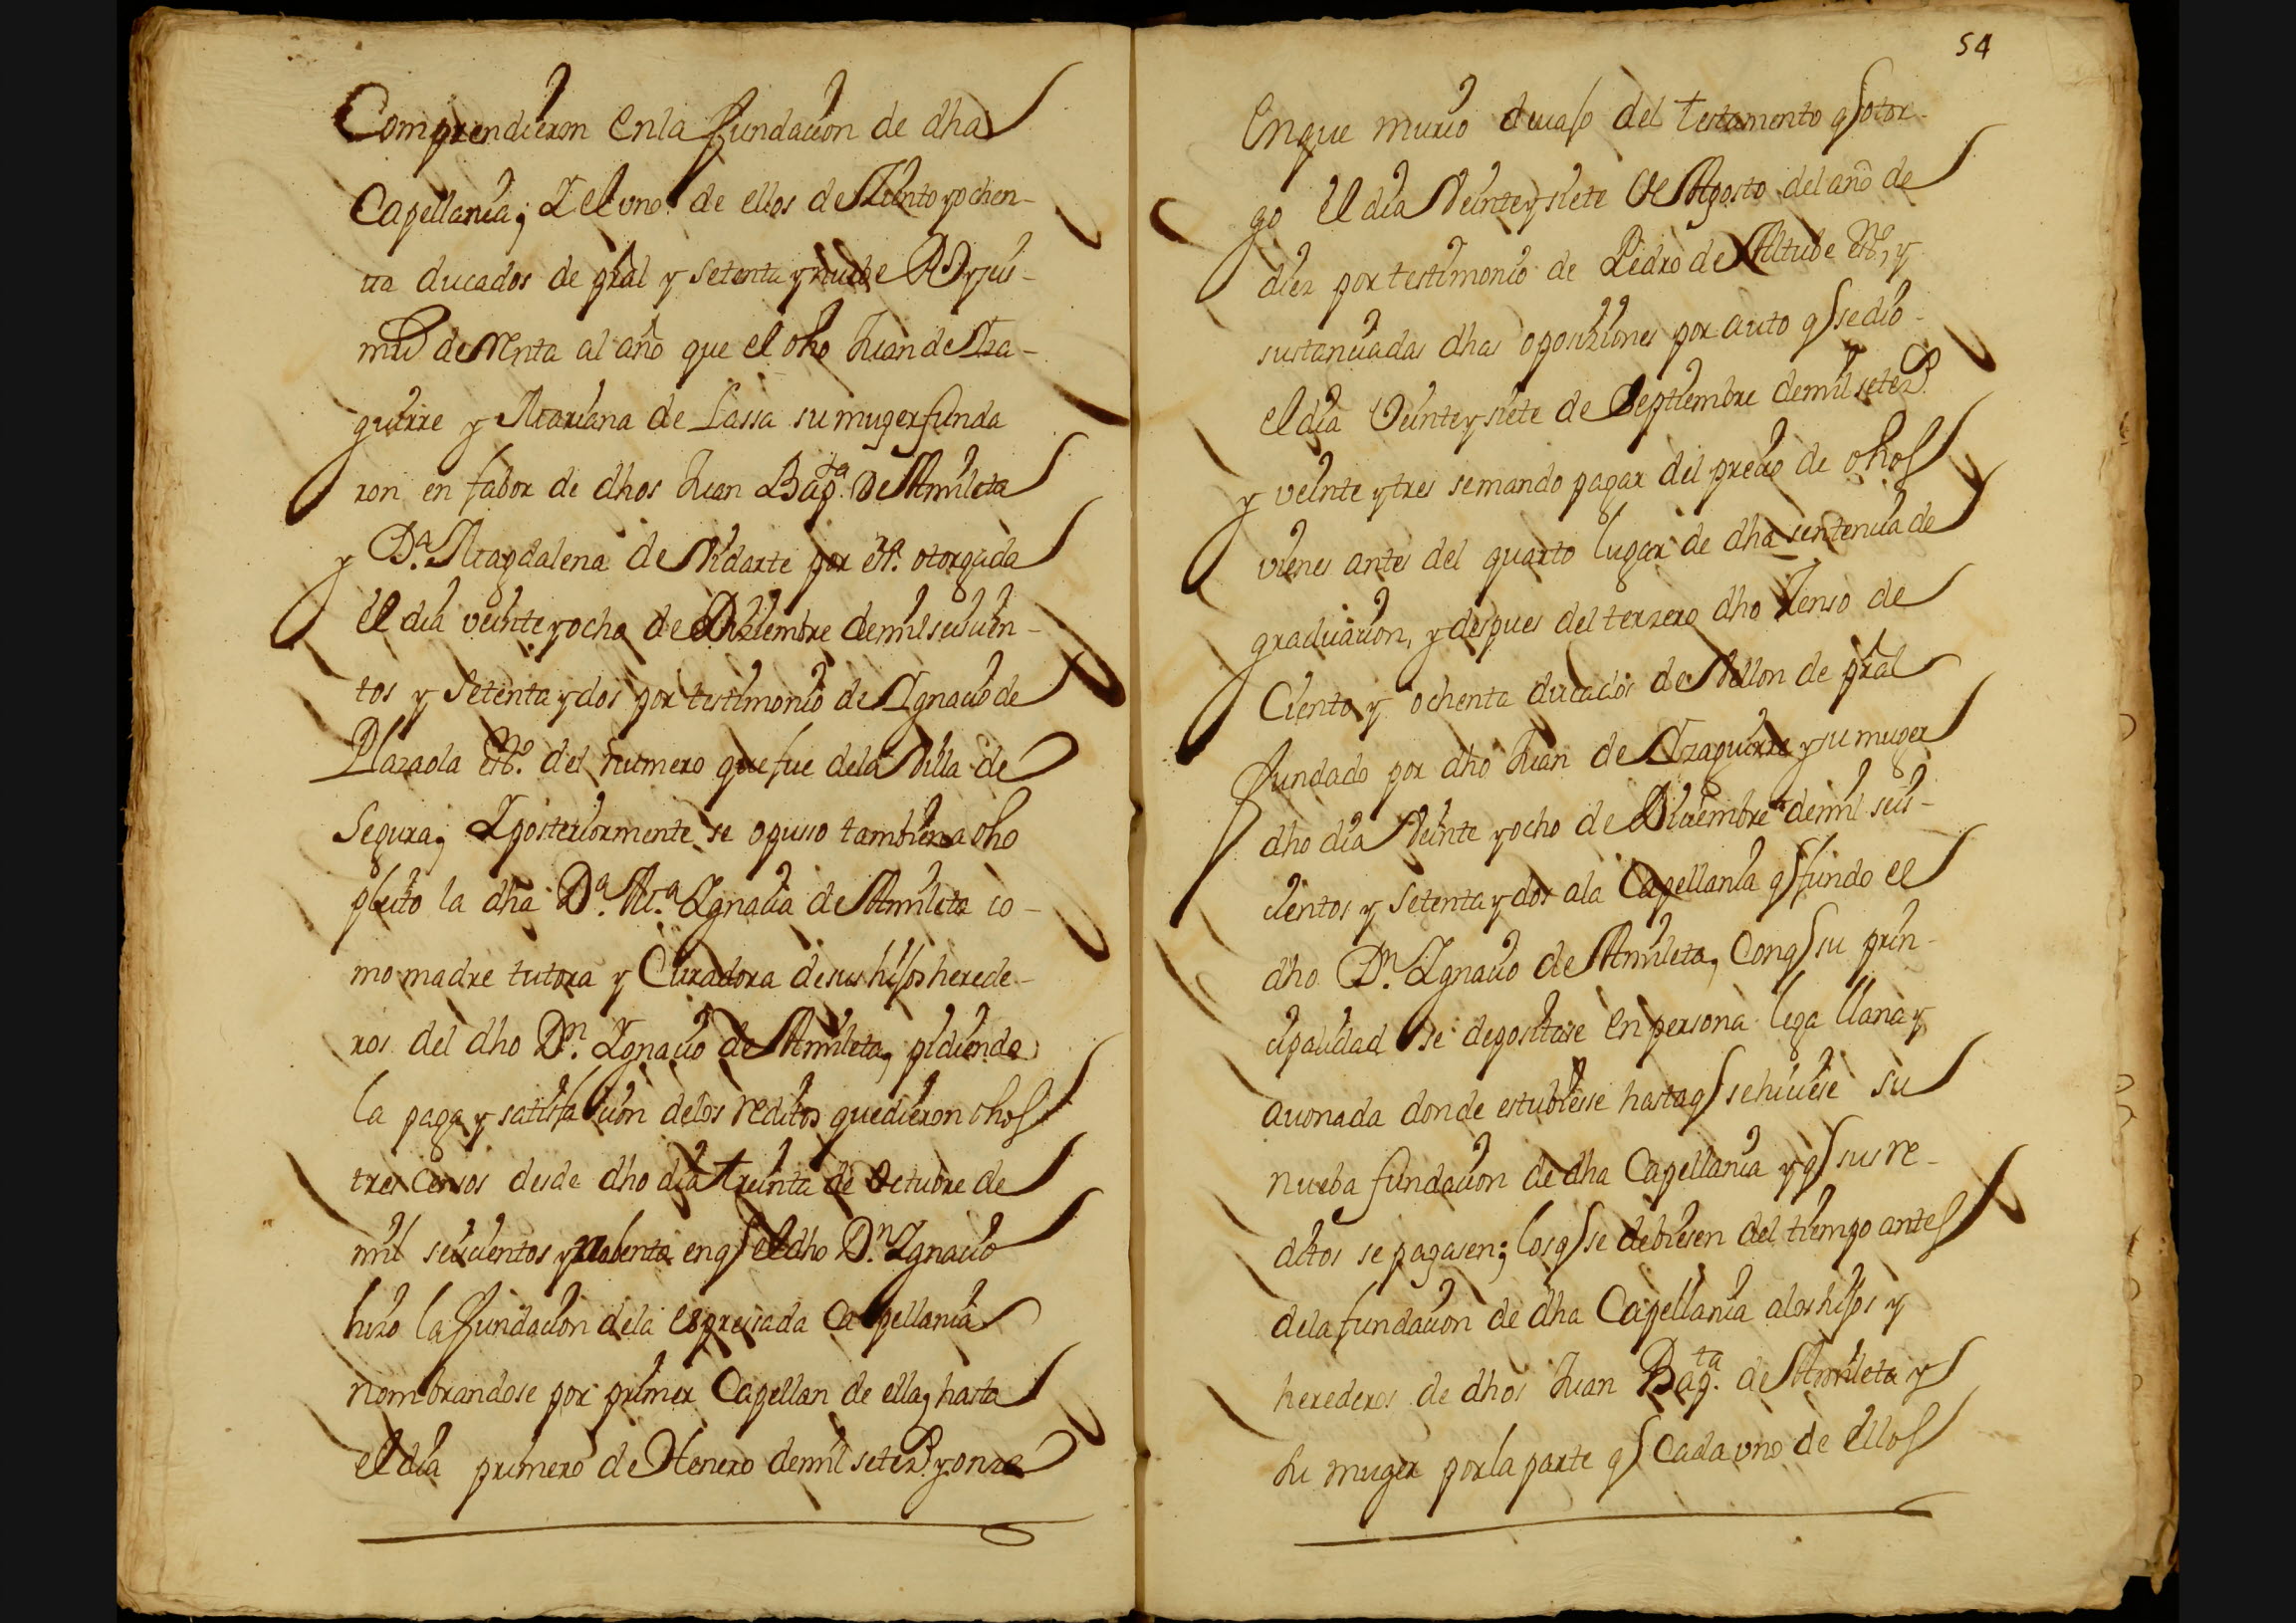 Comprendieron en la fundacion de dha
Capellania; Y el uno de ellos de Ziento y ochen-
ta ducados de pral y setenta y nuebe Rs y seis
mrs de renta al año que el dho Juan de Yza-
guirre y Mariana de Lassa su muger funda
ron en fabor de dhos Juan Bapta de Armleta
y Da. Magdalena de Vidarte por esra. otorgada
el dia veinte y ocho de Diziembre de mil seiscien-
tos y setenta y dos por testimonio de Ygnacio de
Plazaola esno. del numero que fue de la Villa de
Segura; Y posteriormente se opusso tambien a dho
pleito la dha Da. Ma. Ygnacia de Armleta co-
mo madre tutora y Curadora de sus hijos herede-
ros del dho Dn. Ygnacio de Armleta, pidiendo
la paga y satisfacion de los reditos que dieron dhos
tres Censos desde dho dia treinta de Octubre de
mil seiscientos y nobenta en q el dho Dn. Ygnacio
hizo la fundacion de la expressada Capellania
nombrandose por primer Capellan de ella, hasta
el dia primero de Henero de mil setezs. y onze
54
En que murio devaso del testamento q otor-
go el dia Veinte y siete de Agosto del año de
diez por testimonio de Pedro de Altube esno., y
sustanciadas dhas oposiziones por auto q se dio
el dia Veinte y siete de Septiembre de mil setezs.
y veinte y tres se mando pagar del precio de dhos
vienes antes del quarto lugar de dha sentencia de
graduacion, y despues del terzero dho Zenso de
Ciento y ochenta ducados de Vellon de pral
fundado por dho Juan de Yzaguirre y su muger
dho dia Veinte y ocho de Diciembre de mil seis-
cientos y setenta y dos a la Capellania q fundo el
dho Dn. Ygnacio de Armleta, Con q su prin-
cipalidad se depositase en persona lega llana y
avonada donde estubiesse hasta q se hiciese su
nueba fundacion de dha Capellania y q sus re-
ditos se pagasen; los q se debiesen del tiempo antes
de la fundacion de dha Capellania a los hijos y
herederos de dhos Juan Bapta. de Armleta y
su muger por la parte q Cada uno de ellos